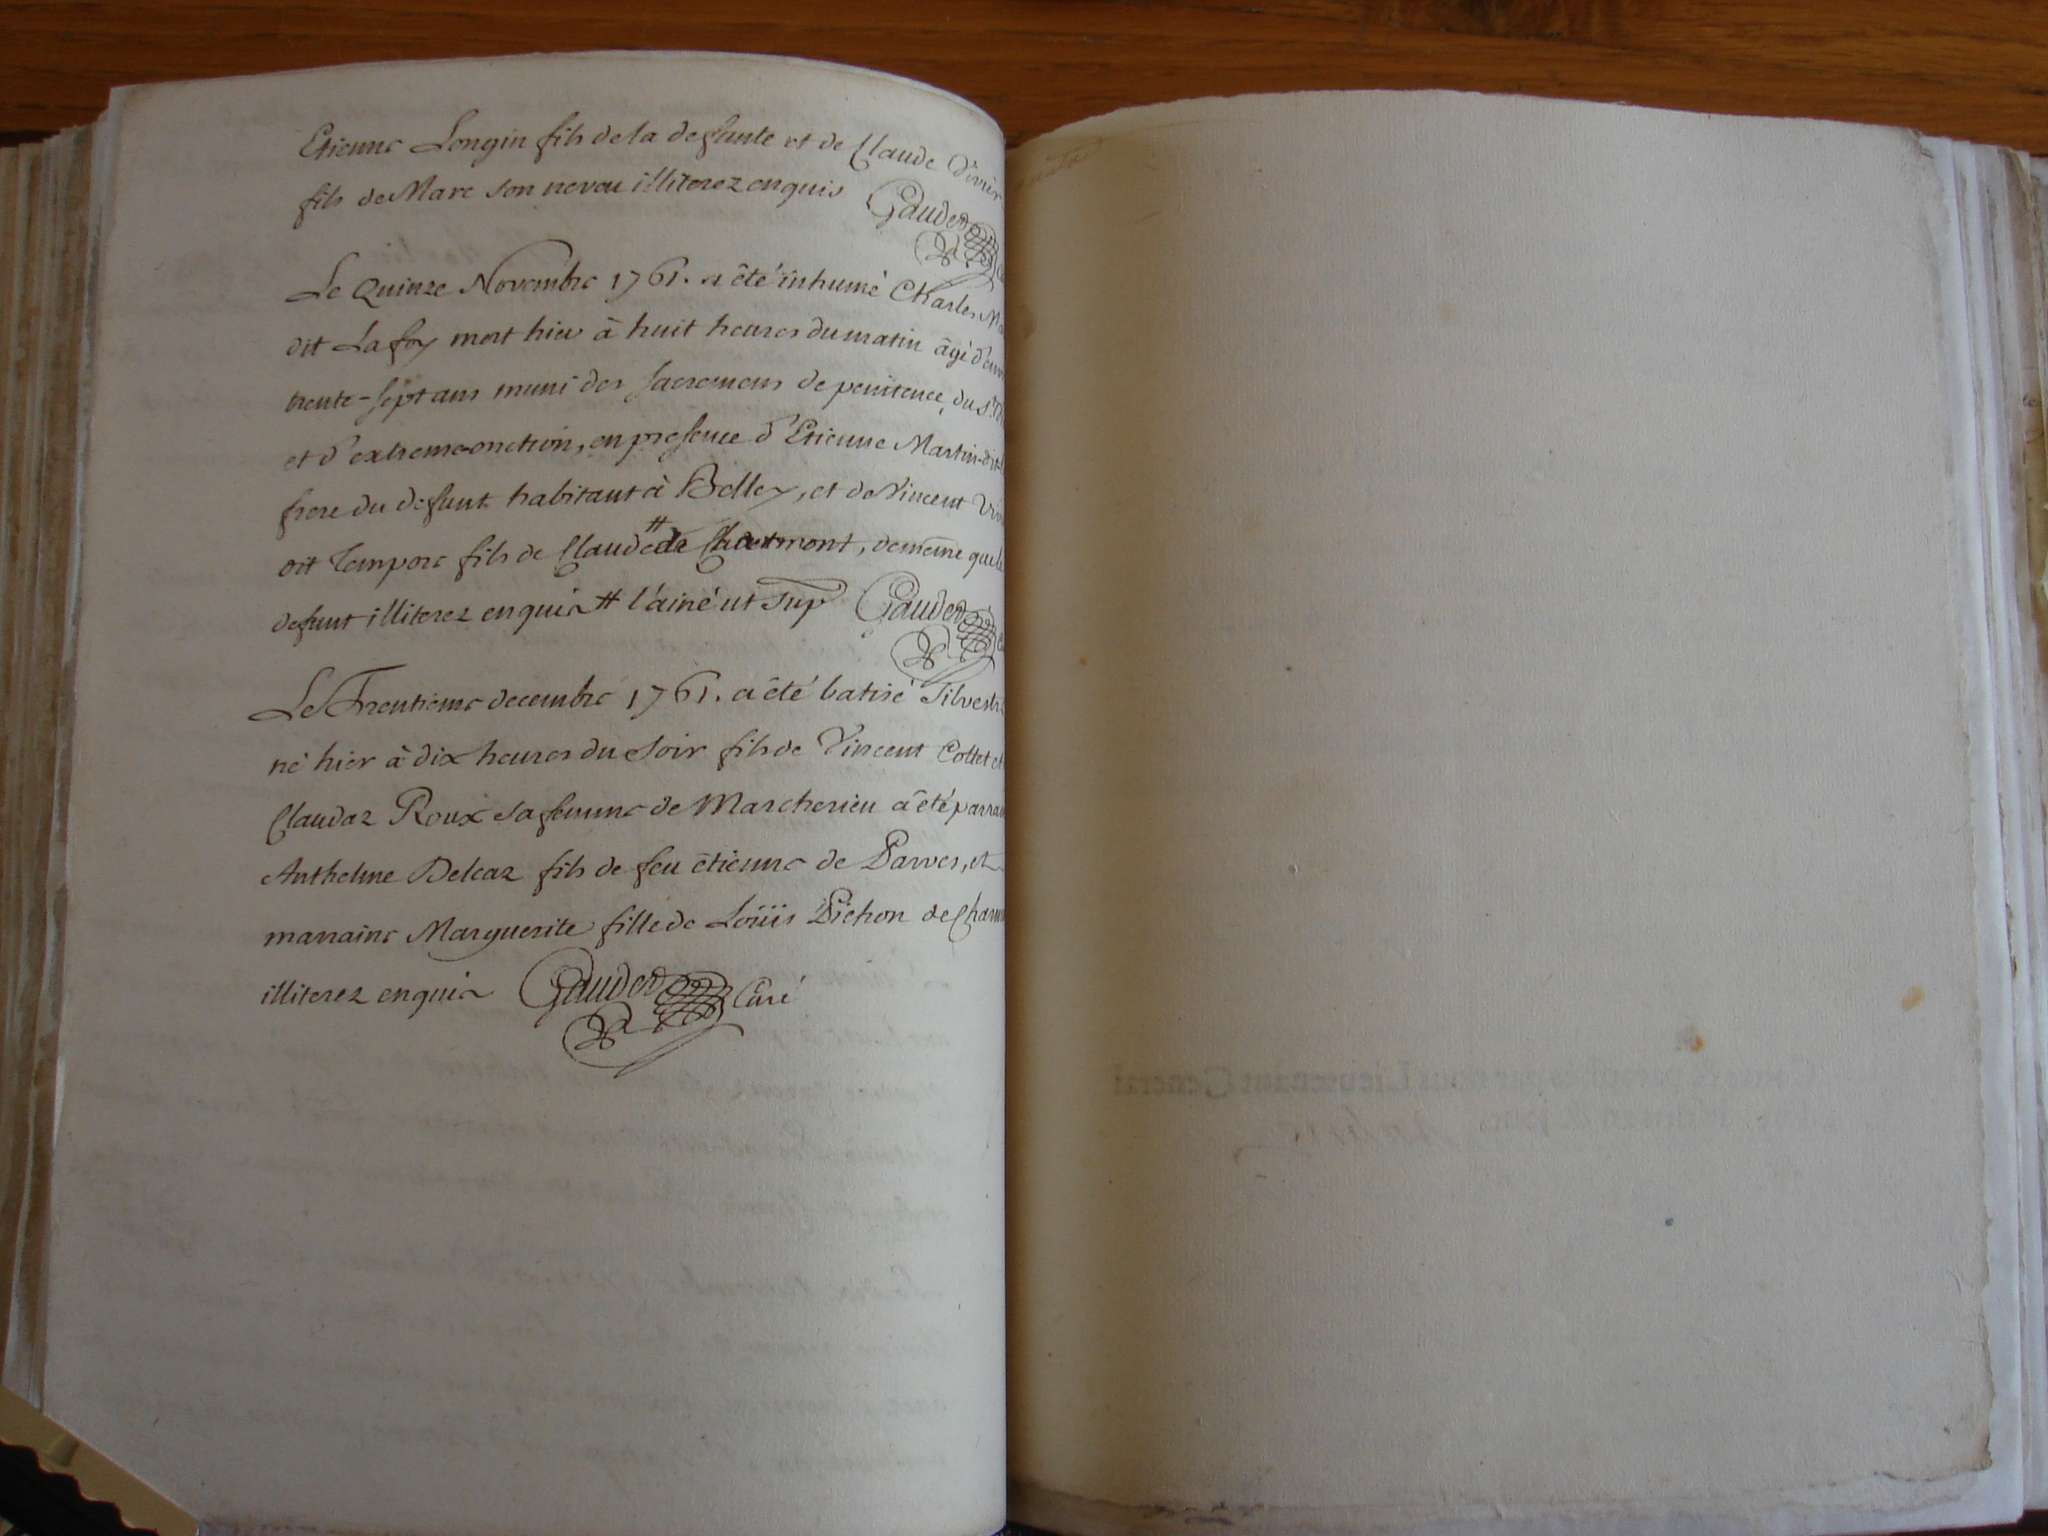 Etienne Longin fils de la defante et de Claude
fils de Marc son neveu illiterez enquis Gauder
Le Quinze Novembre 1761. a été inhumé Charles
dit Lafoy mort hier à huit heures du matin âgé
trente-sept ans muni des sacremens de penitence, du
et d'extreme-onction, en presence d'Etienne Martin-dit
frere du defunt habitant à Belley, et de Vincent
dit Tempore fils de Claude # , de même que le
defunt illiterez enquis # l'ainé ut sup Gauder
Le Trentieme decembre 1761. a été batisé Silvestre
né hier à dix heures du soir fils de Vincent Collet et
Claudaz Roux sa femme de Marcherieu a été parrain
Anthelme Belcaz fils de feu étienne de Parves, et
marraine Marguerite fille de Loüis Pichon de
illiterez enquis Gauder Curé